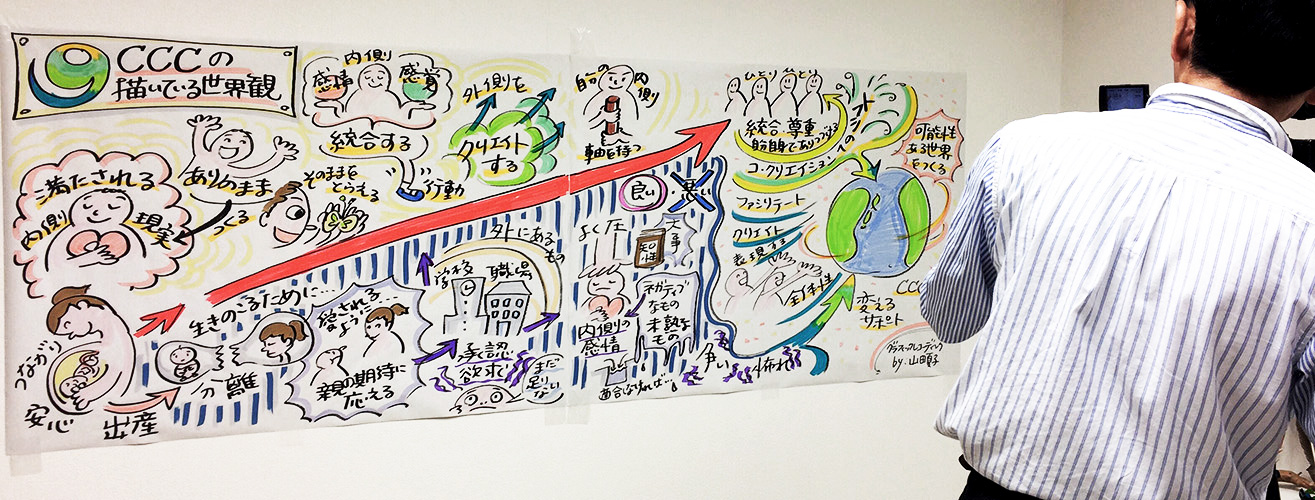 CCCの
描いている世界観
内側
感情
感覚
統合する
行動
外側を
クリエイト
する
自分の
内側
軸を持つ
ひとり ひとり
統合・尊重
コ・クリエイション
ファシリテート
クリエイト
表現する
全体性
可能性
ある世界
をつくる
CCC
変える
サポート
満たされる
内側
現実
ありのまま
つくる
そのままを
とらえる
つながり
安心
出産
分離
生きのこるために…
愛される
ように…
親の期待に
応える
学校
職場
外にある
もの
承認
欲求
まだ
足りない
良い・悪い
よく在
知性
大事
内側の
感情
ネガティブ
なもの
未熟な
もの
適合しなければ…
争い
怖れ
グラフィックレコーディング